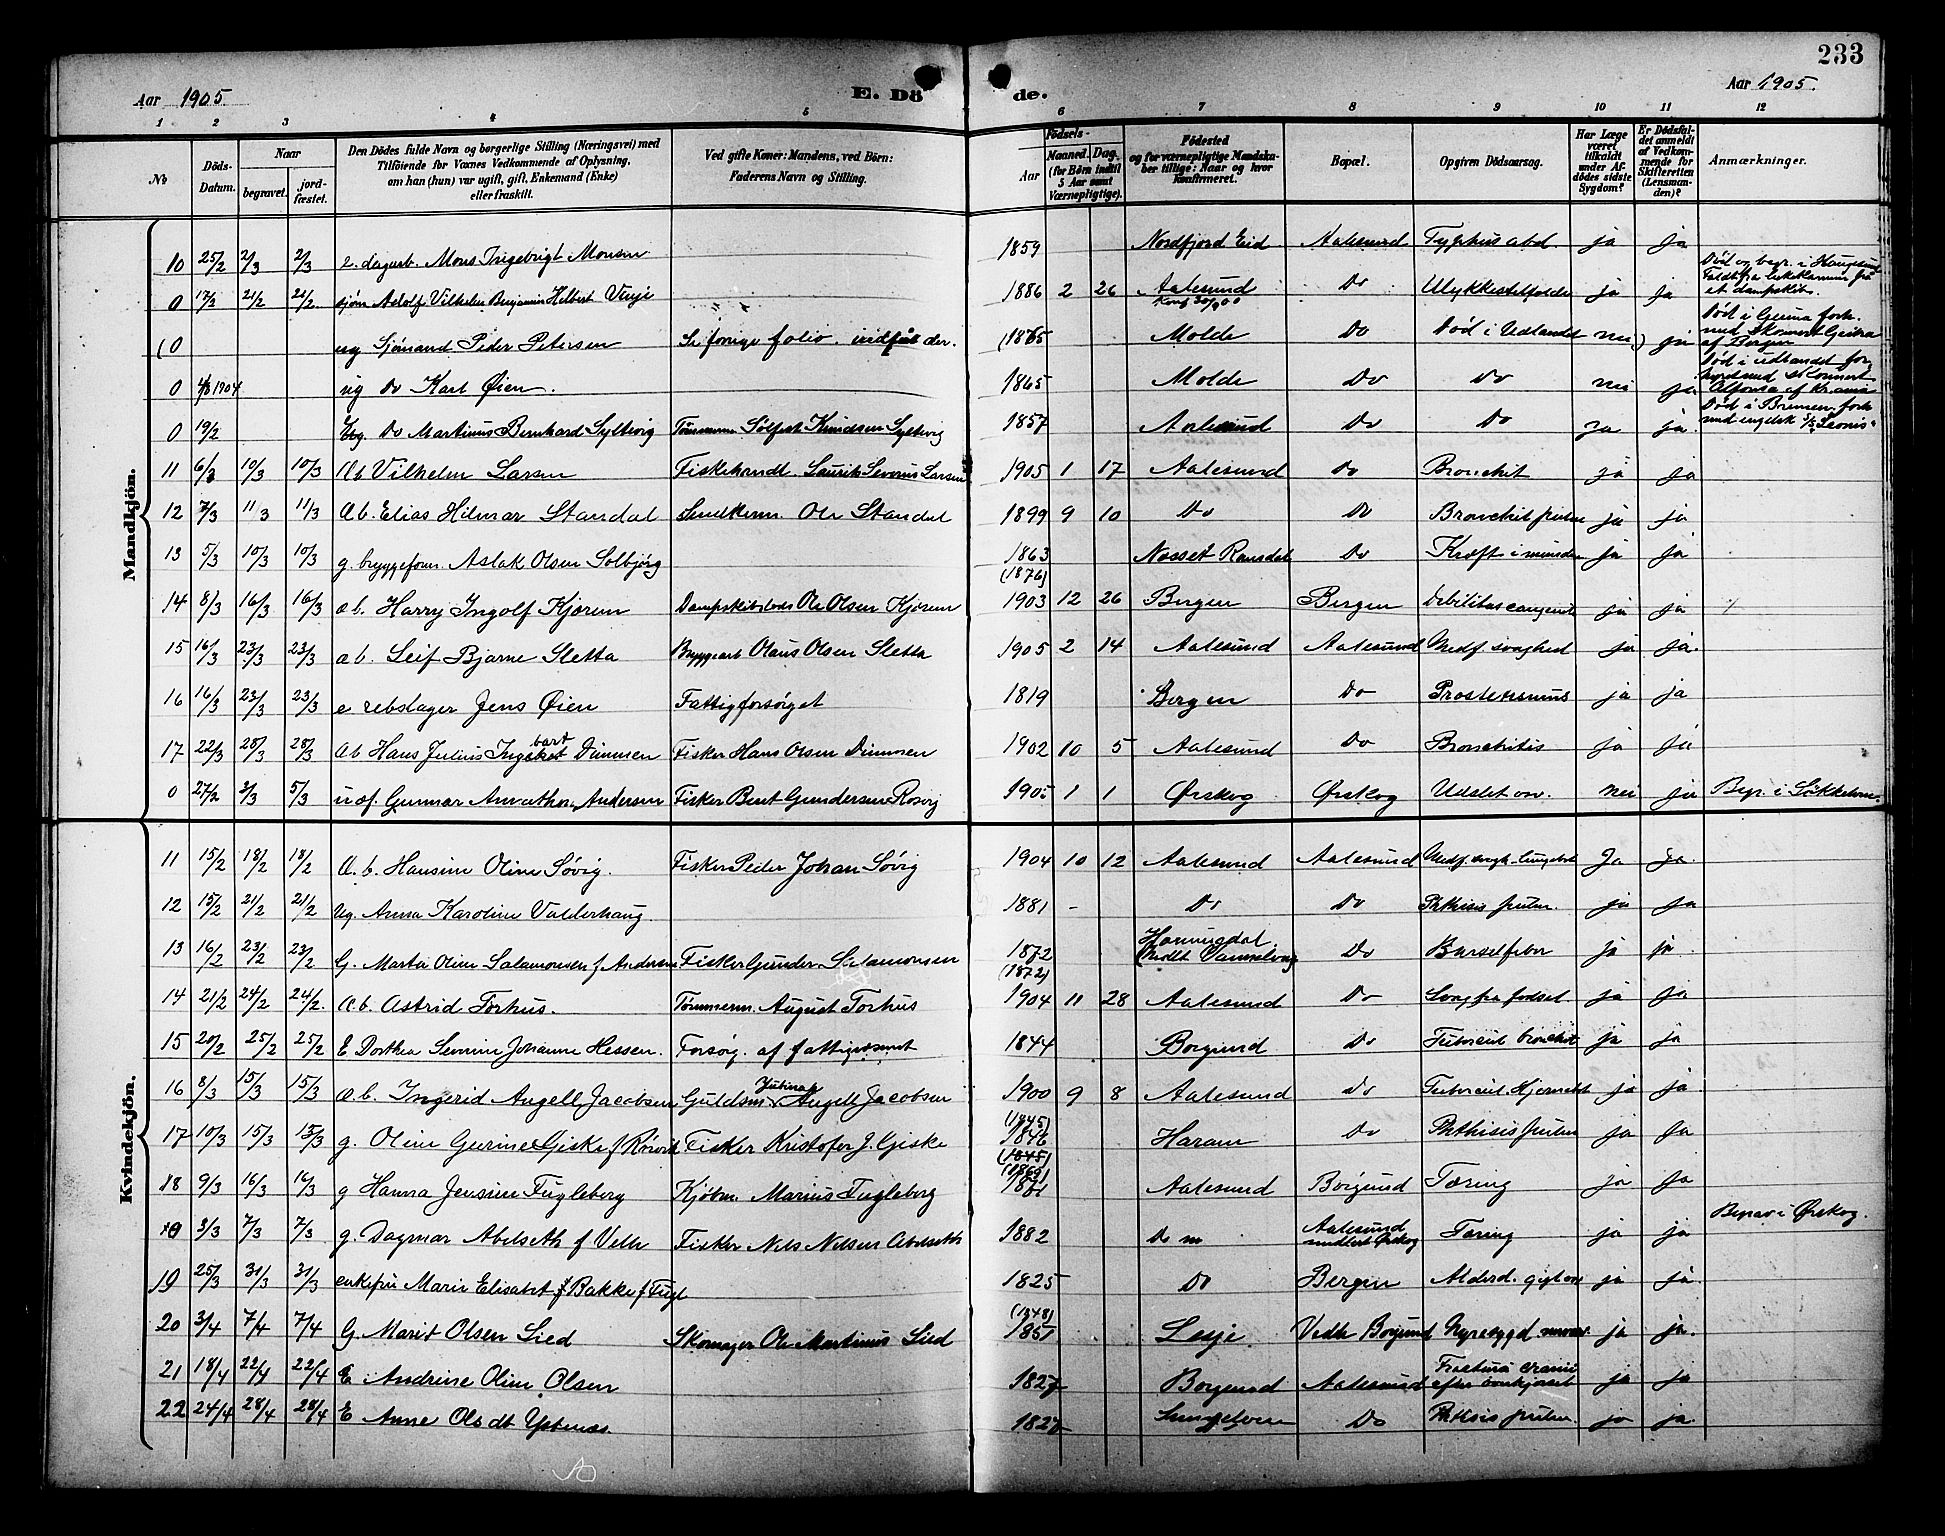 233
Aar 1905. E. Dö de. Aar 1905.
1 2 3 4 5 6 7 8 9 10 11 12
No Döds-Datum. Naar begravet. jord-fæstet. Den Dödes fulde Navn og borgerlige Stilling (Næringsvei) med Tilföiende for Voxnes Vedkommende af Oplysning, om han (hun) var ugift, gift, Enkemand (Enke) eller fraskilt. Ved gifte Koner: Mandens, ved Börn: Faderens Navn og Stilling. Födsels- Aar Maaned. Dag. (for Börn indtil 5 Aar samt Værnepligtige). Födested og for værnepligtige Mandskaber tillige: Naar og hvor Konfirmeret. Bopæl. Opgiven Dödsaarsag. Har Læge været tilkaldt under Afdödes sidste Sygdom? Er Dödsfaldet anmeldt af Vedkommende for Skifteretten (Lensmanden)? Anmærkninger.
Mandkjön.
10 25/2 2/3 2/3 dagarb. Mons Ingebrigt Monsen 1859 Nordfjord Eid Aalesund Typhus abd. ja ja
0 17/2 21/2 21/2 sjöm Adolf Vilhelm Benjamin Helbert 1886 2 26 Aalesund Konf 30/9 00 Do Ulykkestilfælde ja ja Död og begr. i Haugesund et dampskib.
(0 ug Sjömand Peder Petersen Se forrige folio. (1865 Molde Do Död i Udlandet nei) ja Död i
0 4/8 1904 ug Do Karl Øien. 1865 Molde Do Do nei ja Död i udlandet
0 19/2 Ug. Do Martinus Bernhard Syltevig Knudsen Syltevig 1857 Aalesund Do Do ja ja. Död i Bremen
11 6/3 10/3 10/3 Ab Vilhelm Larsen Fiskehandl. Laurits Severus Larsen 1905 1 17 Aalesund Do Bronchit ja ja
12 7/3 11/3 11/3 Ab. Elias Hilmar Standal Smedkerm. Ole Standal 1899 9 10 Do Do Bronchit ja ja
13 5/3 10/3 10/3 g. bryggeform. Aslak Olsen Solbjörg 1863 Nesset Romsdal Do Kræft i munden ja ja
14 8/3 16/3 16/3 ab. Harry Ingolf Kjörem Dampskibslods Ole Olsen Kjörem (1876) 1903 12 26 Bergen Bergen Debilitas congenita ja ja
15 16/3 23/3 23/3 ab. Leif Bjarne Sletta Bryggearb Olaus Olsen Sletta 1905 2 14 Aalesund Aalesund Medf. svaghed ja ja.
16 16/3 23/3 23/3 e rebslager Jens Øien Fattigforsörget 1819 Bergen Do ja ja
17 22/3 28/3 28/3 Ab Hans Julius Dimmen Fisker Hans Olsen Dimmen 1902 10 5 Aalesund Do Bronchitis ja ja
0 27/2 3/3 5/3 Gunnar Andersen Fisker Bent Gundersen Rosvig 1905 1 1 Ørskog Ørskog nei ja
Kvindekjön.
11 15/2 18/2 18/2 A. b. Hansine Oline Søvig. Fisker Peder Johan Søvig 1904 10 12 Aalesund Aalesund Ja ja.
12 15/2 21/2 21/2 Ug. Anna Karoline Valderhaug. 1881 - Do Do Phthisis pulm. ja ja
13 16/2 23/2 23/2 G. Marta Oline Salamonsen f Andersen Fisker Gunder Salamonsen 1872 (1872) Do Barselfeber ja ja.
14 21/2 24/2 24/2. A. b. Astrid Torhus. Tömmerm. August Torhus 1904 11 28 Aalesund Do Svag fra fodsel. ja ja
15 20/2 25/2 25/2 E Dorthea Severine Johanne Hessen. Forsörg. af fattigvæsenet 1844 Borgund Do ja ja
16 8/3 15/3 15/3 a b. Ingerid Angell Jacobsen Guldsm Angell Jacobsen 1900 9 8 Aalesund Do ja ja
17 10/3 15/3 15/3 g. Oline Gurine Giske f Rövik Fisker Kristofer J. Giske (1845) 1846 (1845) Haram Do Phthisis pulm ja ja
18 9/3 16/3 16/3 g Hanna Jensine Fugleberg Kjöbm. Marius Fugleberg (1869) Aalesund Borgund Tæring ja ja
0 3/3 7/3 7/3 g. Dagmar Abelseth f Velle Fisker Nels Nelsen Abelseth 1882 Do Aalesund midlert Ørskog Tæring ja ja Begrav i Ørskog.
19 25/3 31/3 31/3 enkefru Marie Elisabet Bakke f Fugl 1825 Do Bergen ja ja.
20 3/4 7/4 7/4 G. Marit Olsen Lied Skomager Ole Martinus Lied (1848) 1851 Lesje Vedle Borgund ja ja.
21 18/4 22/4 22/4 E Andrine Oline Olsen 1827 Borgund Aalesund ja ja
22 24/4 28/4 28/4 E Anne Olsdt Ystenæs 1827 Sunelven Do Phthisis pulm. ja ja.